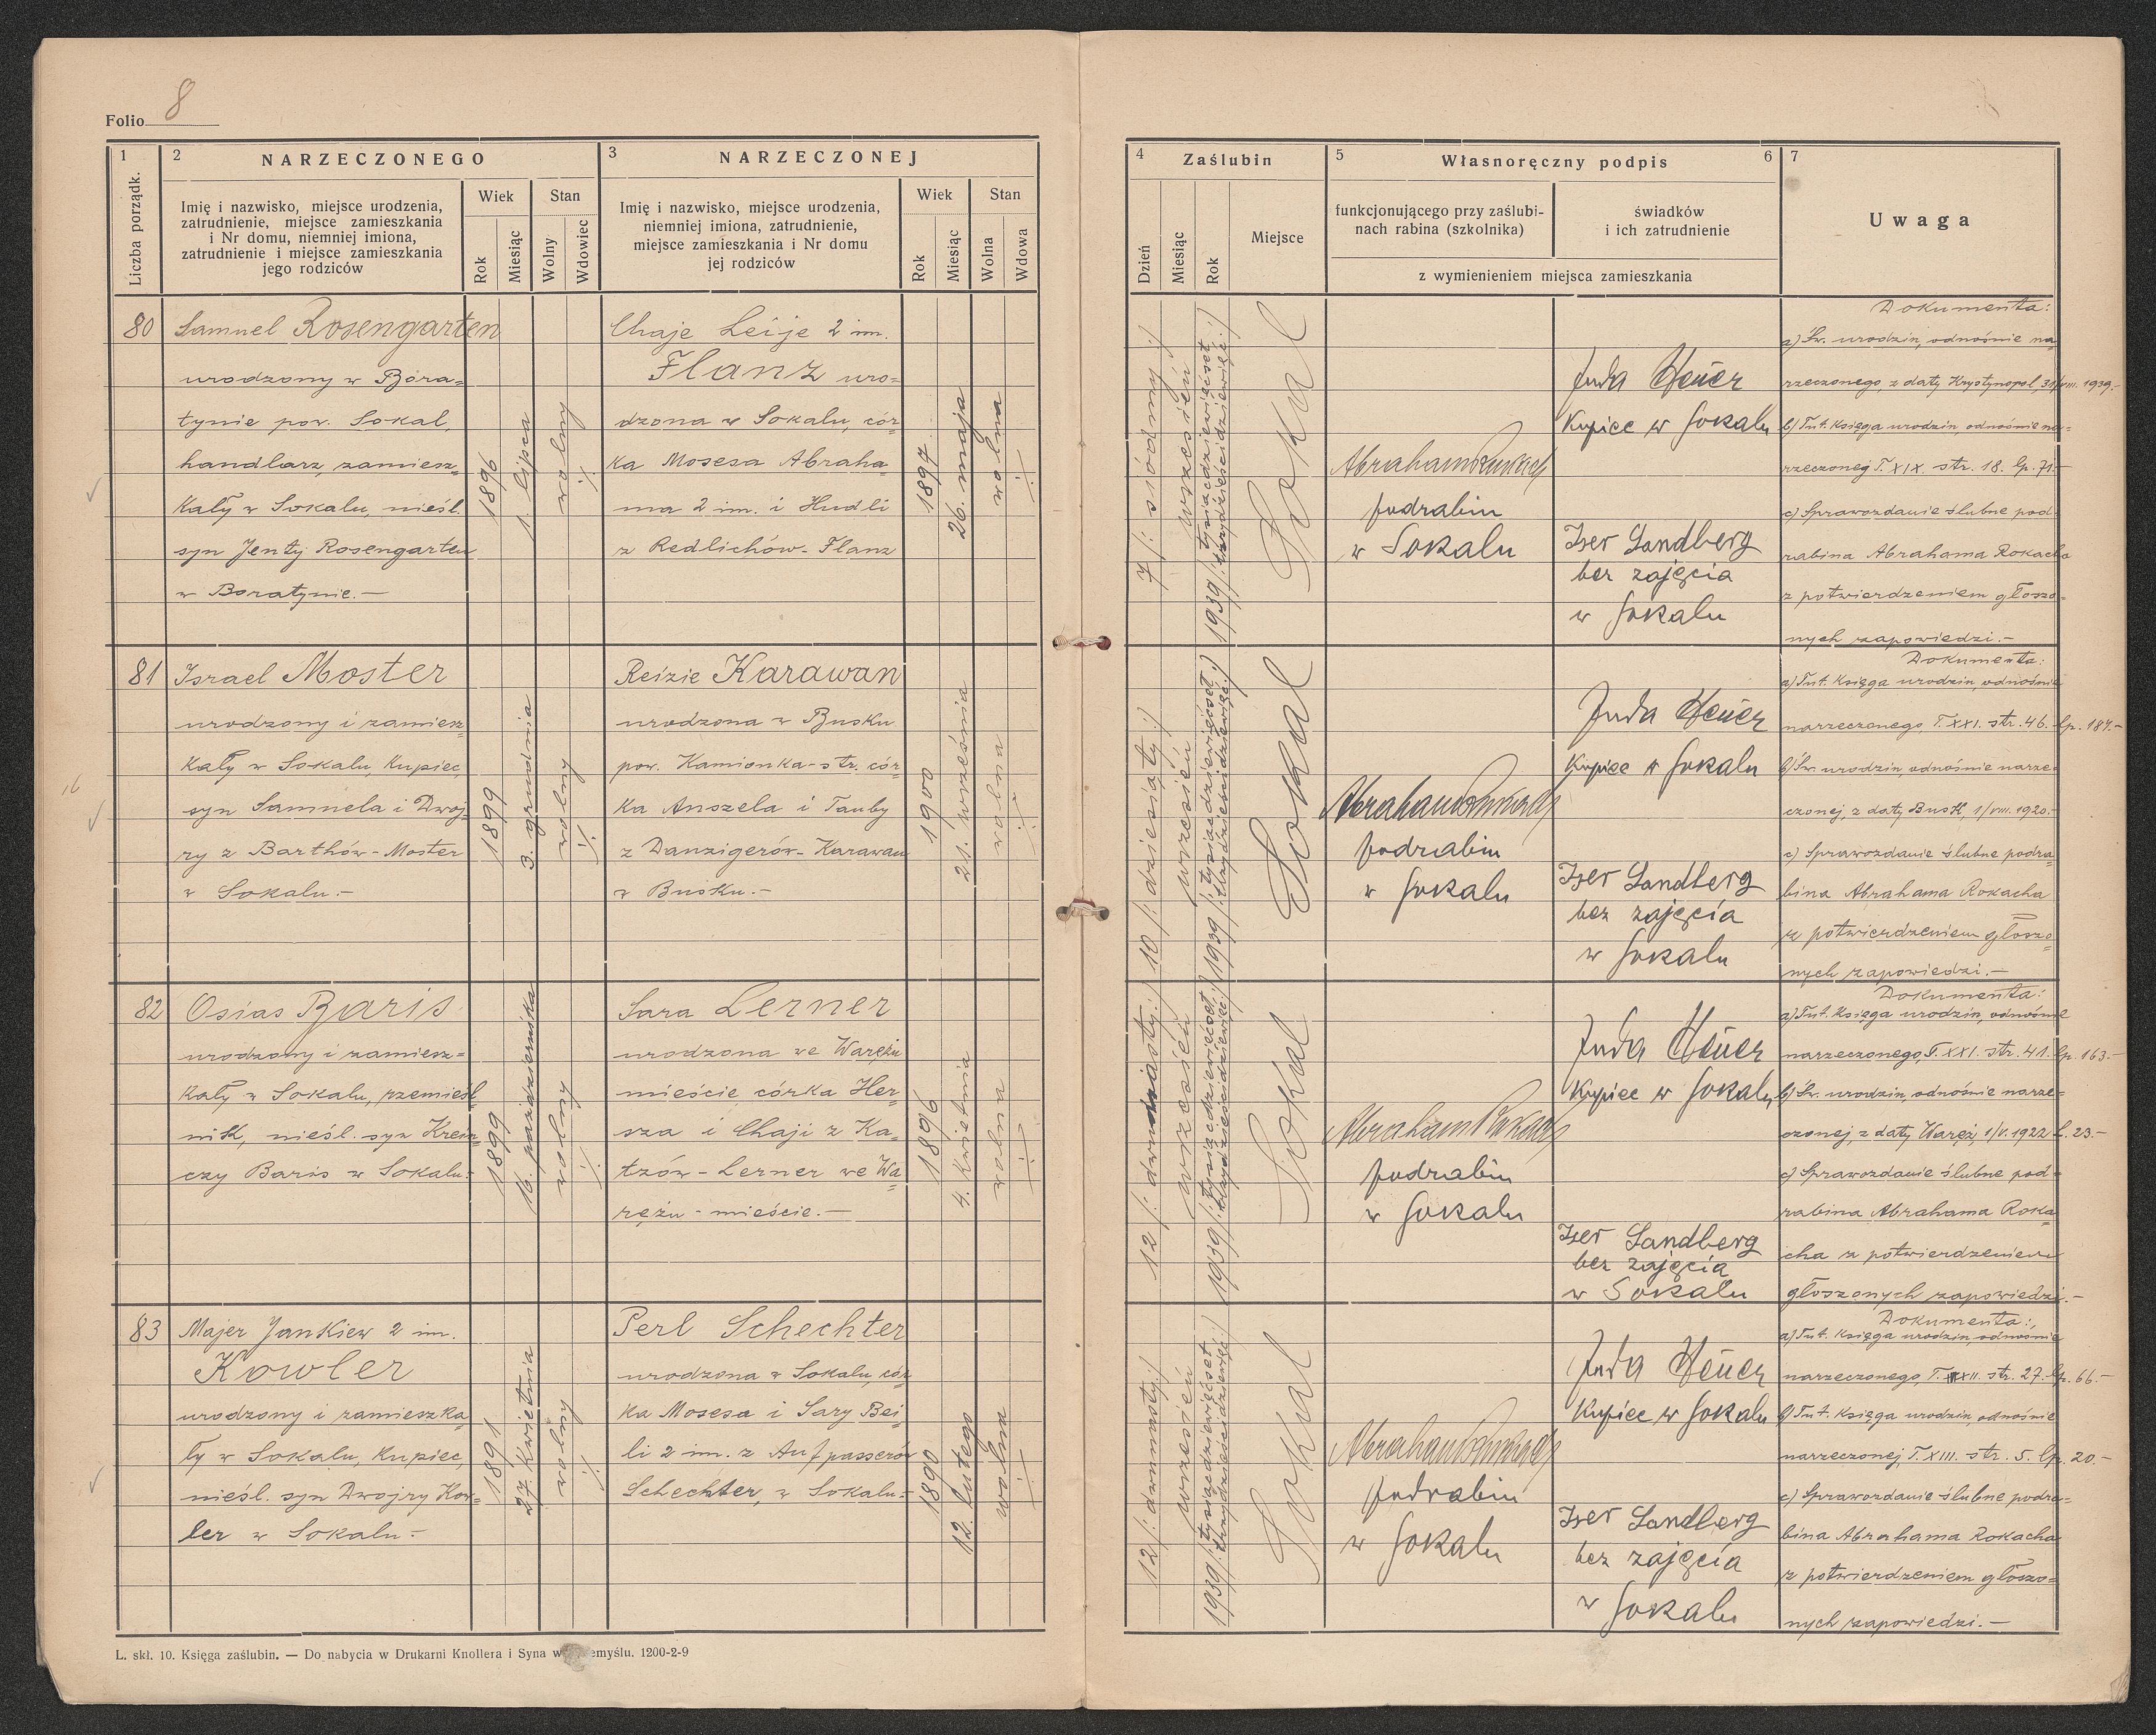 Folio 8
1
Liczba porządk.
2
NARZECZONEGO
Imię i nazwisko, miejsce urodzenia,
zatrudnienie, miejsce zamieszkania
i Nr domu, niemniej imiona,
zatrudnienie i miejsce zamieszkania
jego rodziców
Wiek
Rok
Miesiąc
Stan
Wolny
Wdowiec
3
NARZECZONEJ
Imię i nazwisko, miejsce urodzenia,
niemniej imiona, zatrudnienie,
miejsce zamieszkania i Nr domu
jej rodziców
Wiek
Rok
Miesiąc
Stan
Wolna
Wdowa
4
Zaślubin
Dzień
Miesiąc
Rok
Miejsce
5
Własnoręczny podpis
6
funkcjonującego przy zaślubi-
nach rabina (szkolnika)
świadków
i ich zatrudnienie
z wymienieniem miejsca zamieszkania
7
Uwaga
80
Samuel Rosengarten
urodzony w Bora=
tynie pow. Sokal,
handlarz, zamiesz=
kały w Sokalu, nieśl.
syn Jenty Rosengarten
w Boratynie.-
1896
1. lipca
wolny
Chaje Leije 2 im.
Flanz uro=
dzona w Sokalu, cór=
ka Mosesa Abraha=
ma 2 im. i Hudli
z Redlichów-Flanz
1897
26. maja
wolna
7 /: siódmy :/
wrzesień
1939 /: tysiącdziewięćset
trzydzieścidziewięć :/
Sokal
Abraham Rokach
podrabin
w Sokalu
Juda Heuer
Kupiec w Sokalu
Iser Landberg
bez zajęcia
w Sokalu
Dokumenta:
a) Św. urodzin, odnośnie na=
rzeczonego, z daty Krystynopol, 31/VIII. 1939.-
b) Tut. Księga urodzin, odnośnie na=
rzeczonej T. XIX. str. 18. lp. 71.-
c) Sprawozdanie ślubne pod=
rabina Abrahama Rokacha
z potwierdzeniem głoszo=
nych zapowiedzi.-
81
Israel Moster
urodzony i zamiesz=
kały w Sokalu, kupiec,
syn Samuela i Dwoj=
ry z Barthów-Moster
w Sokalu.-
1899
3. grudnia
wolny
Reizie Karawan
urodzona w Busku
pow. Kamionka-str. cór=
ka Anszela i Tauby
z Danzigerów-Karawan
w Busku.-
1900
21. września
wolna
10 /: dziesiąty :/
wrzesień
1939 /: tysiącdziewięćset
trzydzieścidziewięć :/
Sokal
Abraham Rokach
podrabin
w Sokalu
Juda Heuer
Kupiec w Sokalu
Iser Landberg
bez zajęcia
w Sokalu
Dokumenta:
a) Tut. Księga urodzin, odnośnie
narzeczonego, T. XXI. str. 46. lp. 187.-
b) Św. urodzin odnośnie narze=
czonej, z daty Busk, 1/VIII. 1920.-
c) Sprawozdanie ślubne podra=
bina Abrahama Rokacha
z potwierdzeniem głoszo=
nych zapowiedzi.-
82
Osias Baris
urodzony i zamiesz=
kały w Sokalu, rzemieśl=
nik, nieśl. syn Krein=
czy Baris w Sokalu.-
1899
16. października
wolny
Sara Lerner
urodzona we Warężu
mieście córka Her=
sza i Chaji z Ka=
tzów-Lerner we Wa=
rężu-mieście.-
1896
4. kwietnia
wolna
12 /: dwunasty :/
wrzesień
1939 /: tysiącdziewięćset
trzydzieścidziewięć :/
Sokal
Abraham Rokach
podrabin
w Sokalu
Juda Heuer
Kupiec w Sokalu
Iser Landberg
bez zajęcia
w Sokalu
Dokumenta:
a) Tut. Księga urodzin, odnośnie
narzeczonego, T. XXI. str. 41. lp. 163.-
b) Św. urodzin, odnośnie narze=
czonej, z daty Waręż, 1/V. 1922 L. 23.-
c) Sprawozdanie ślubne pod=
rabina Abrahama Roka=
cha z potwierdzeniem
głoszonych zapowiedzi.-
83
Majer Jankiew 2 im.
Kowler
urodzony i zamieszka=
ły w Sokalu, kupiec,
nieśl. syn Dwojry Kow=
ler w Sokalu.-
1891
27. kwietnia
wolny
Perl Schechter
urodzona w Sokalu, cór=
ka Mosesa i Sary Bei=
li 2 im. z Aufpasserów
Schechter, w Sokalu.-
1890
12. lutego
wolna
12 /: dwunasty :/
wrzesień
1939 /: tysiącdziewięćset
trzydzieścidziewięć :/
Sokal
Abraham Rokach
podrabin
w Sokalu
Juda Heuer
Kupiec w Sokalu
Iser Landberg
bez zajęcia
w Sokalu
Dokumenta:
a) Tut. Księga urodzin, odnośnie
narzeczonego T. XII. str. 27. lp. 66.-
b) Tut. Księga urodzin, odnośnie
narzeczonej, T. XIII. str. 5. lp. 20.-
c) Sprawozdanie ślubne podra=
bina Abrahama Rokacha
z potwierdzeniem głoszo=
nych zapowiedzi.-
L. skł. 10. Księga zaślubin. — Do nabycia w Drukarni Knollera i Syna w Przemyślu. 1200-2-9